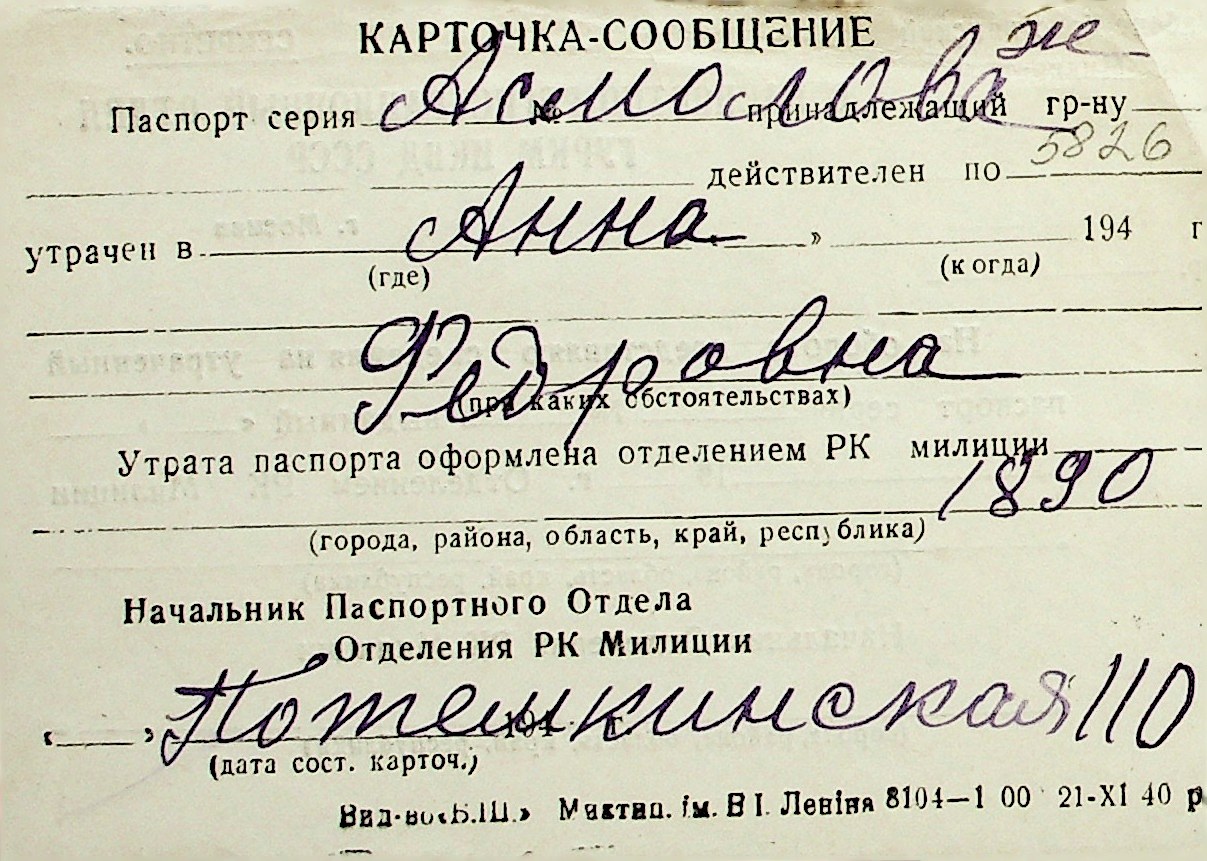 КАРТОЧКА-СООБЩЕНИЕ
же
Асмолова
Паспорт серия № принадлежащий гр-ну
5826
действителен по
Анна
утрачен в » 194 г
(где) (когда)
Федровна
(при каких обстоятельствах)
Утрата паспорта оформлена отделением РК милиции
1890
(города, района, область, край, республика)
Начальник Паспортного Отдела
Отделения РК Милиции
Потемкинская 110
« » 194 г.
(дата сост. карточ.)
Вид-во «Б.Ш.» Миктип. ім. В І. Леніня 8104—1 00 21-XI 40 р